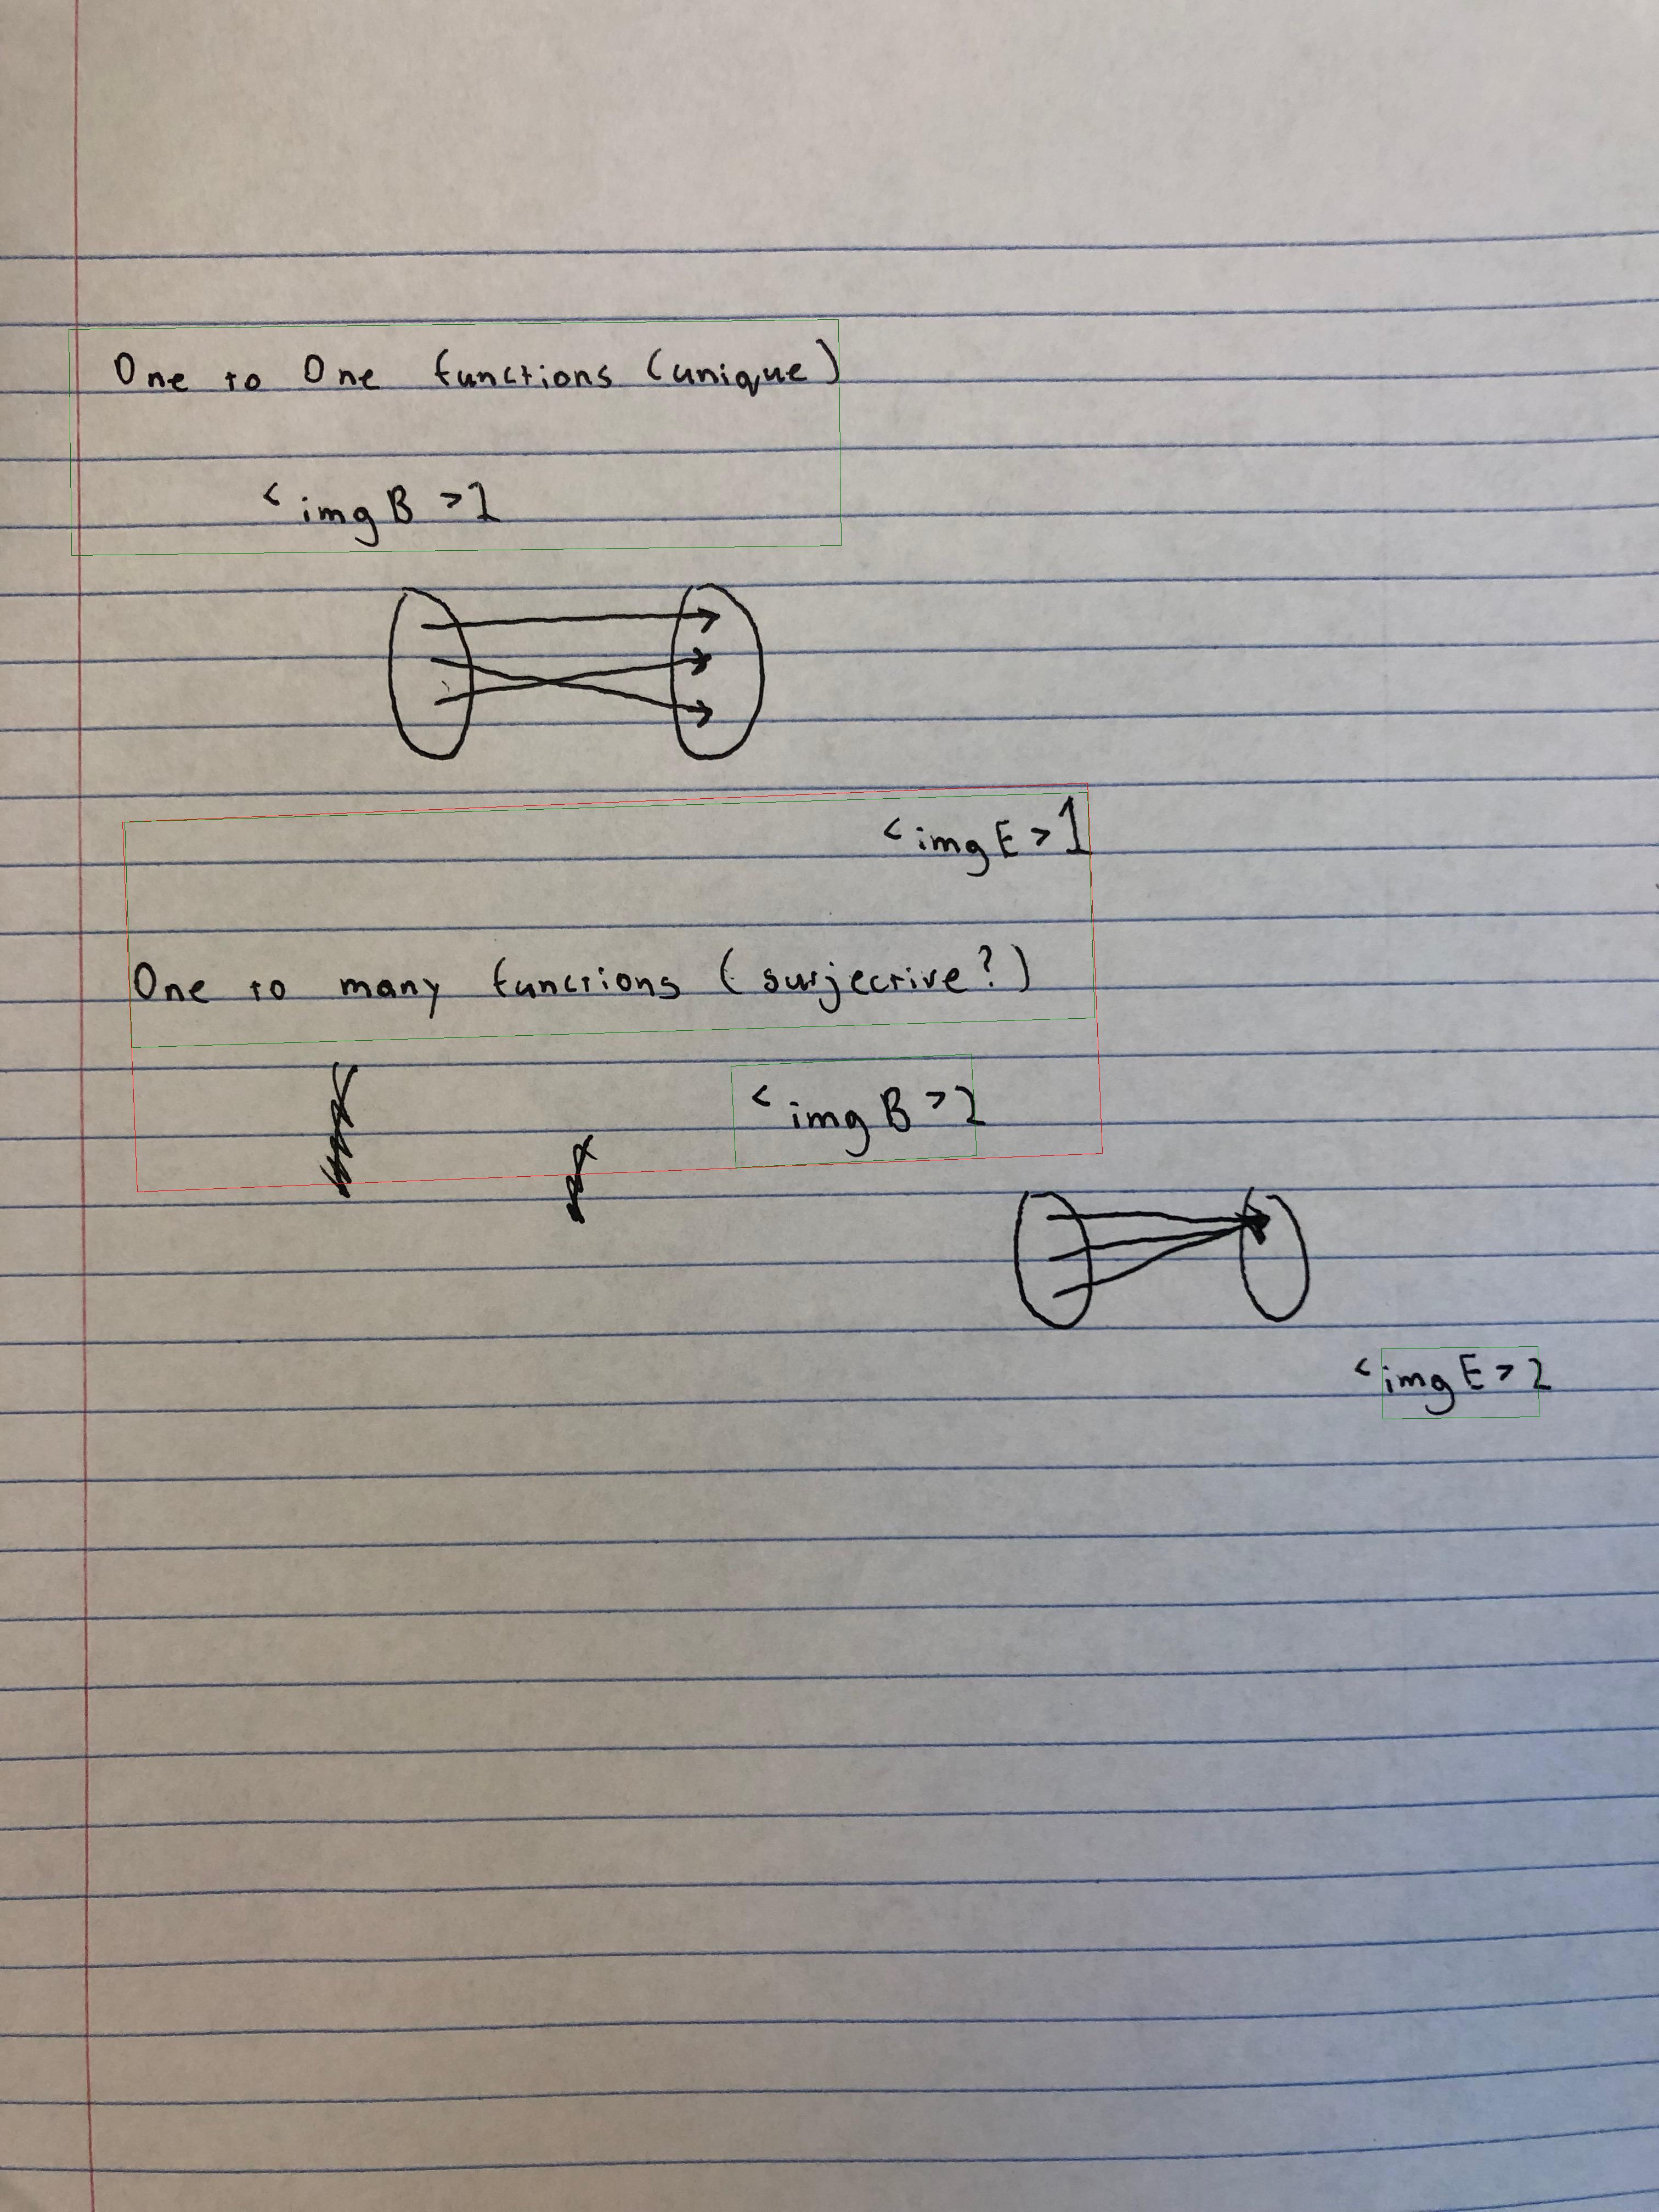 One to One functions (unique)
<imgB>1
<imgE>1
One to many functions (surjective?)
<imgB>2
<imgE>2